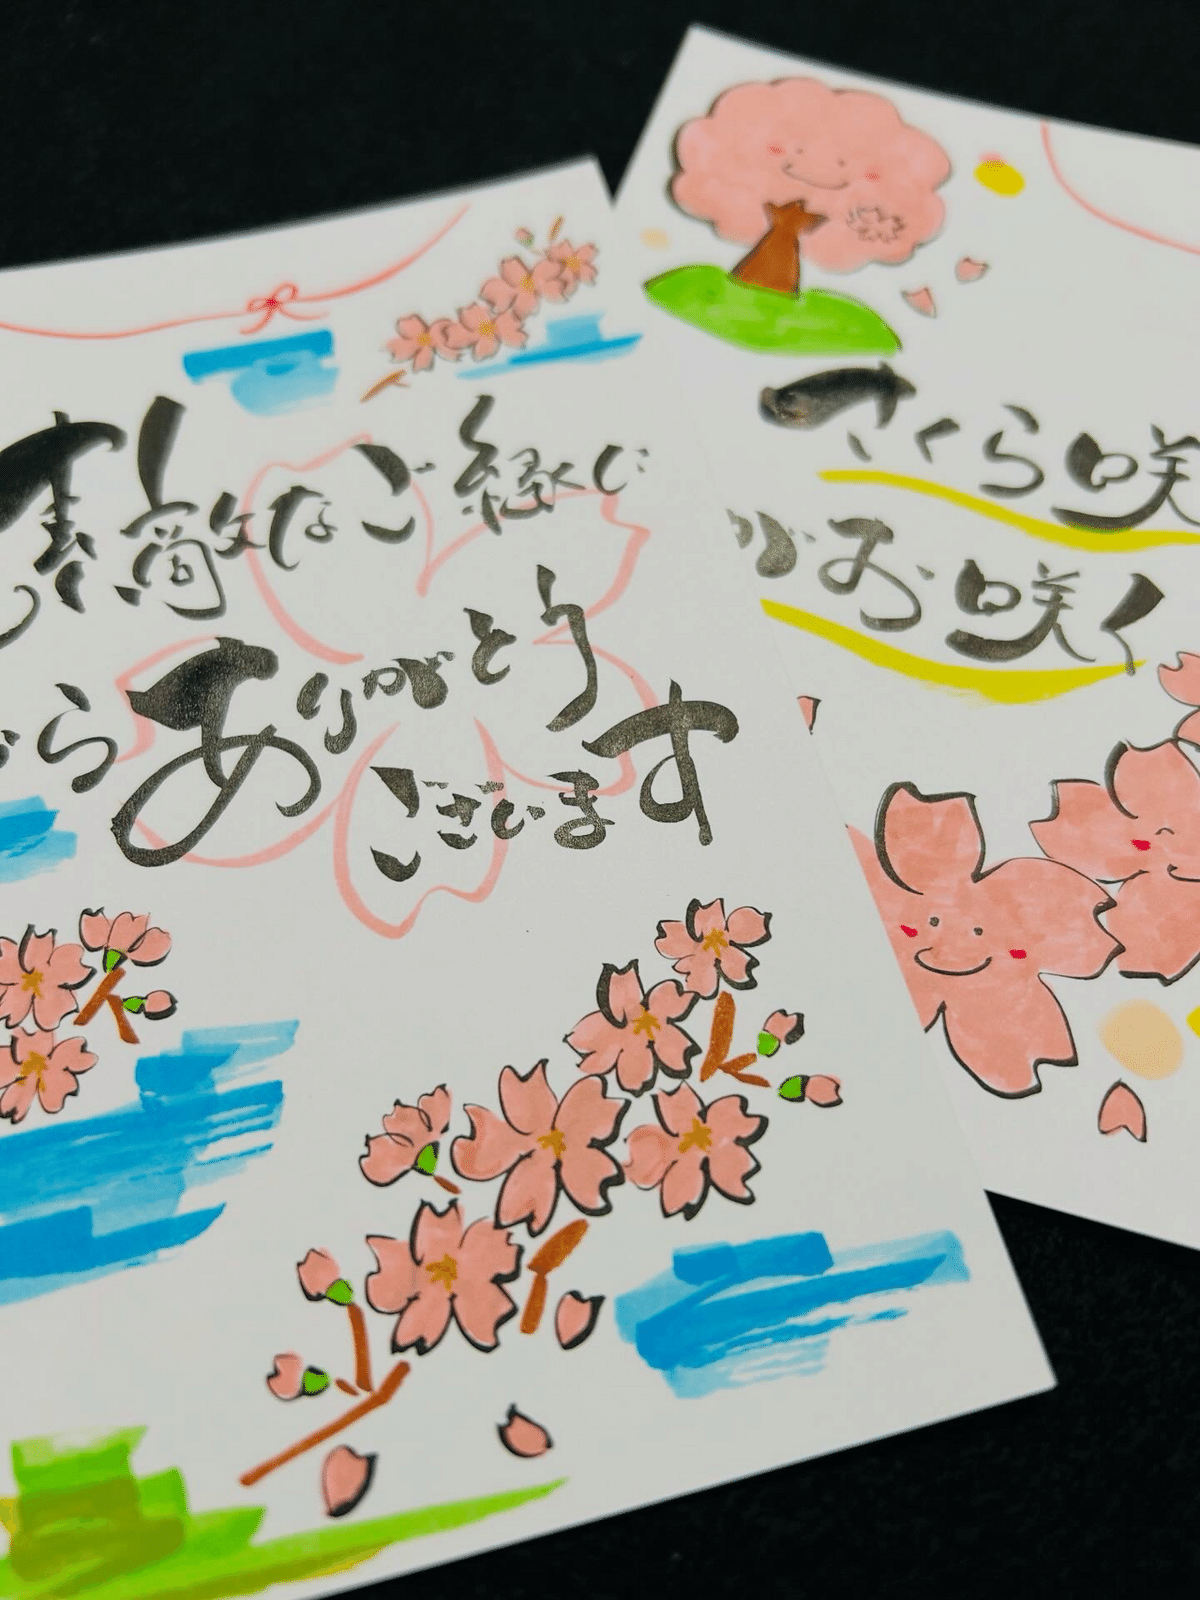 素敵なご縁に
ら ありがとう
ございます
さくら咲
がお咲く